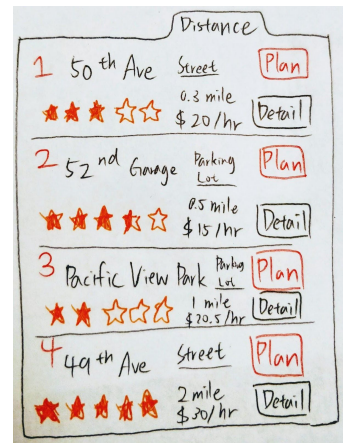 Distance
1 50th Ave Street Plan
0.3 mile
$20/hr Detail
2 52nd Garage Parking Lot Plan
0.5 mile
$15/hr Detail
3 Pacific View Park Parking Lot Plan
1 mile
$20.5/hr Detail
4 49th Ave Street Plan
2 mile
$30/hr Detail